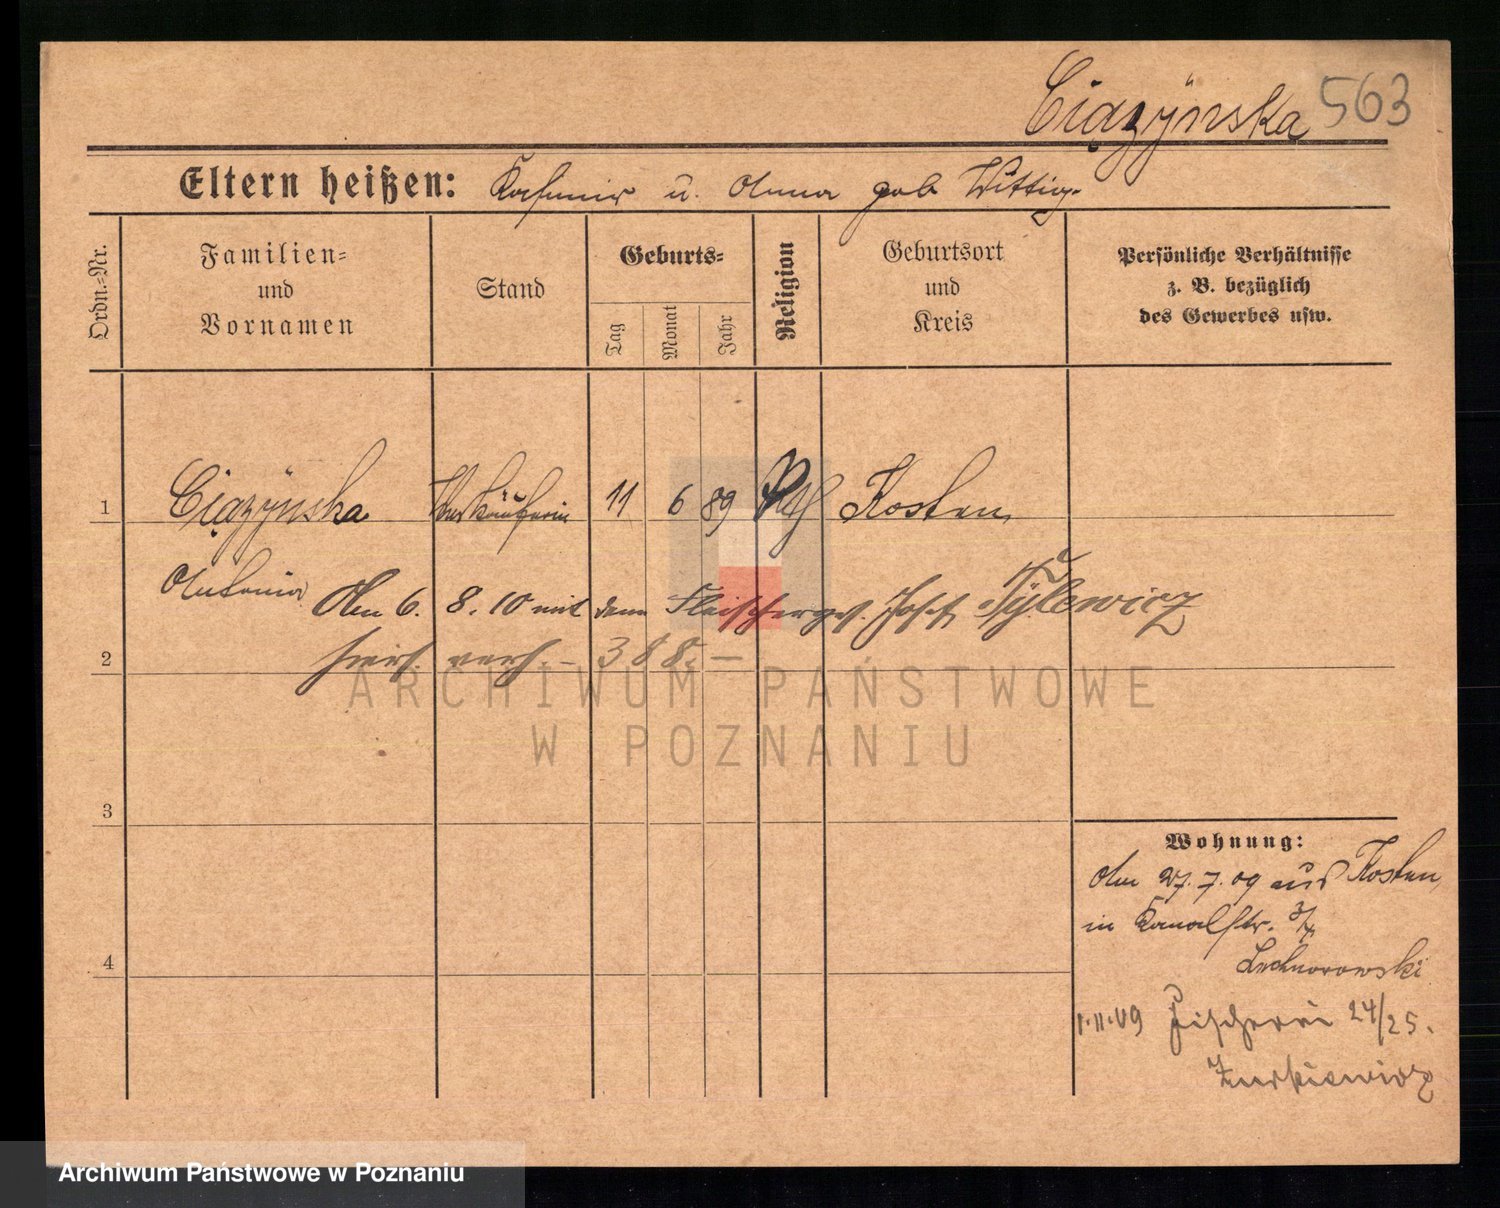 Ciązÿnska 563
Eltern heißen: Kasimir u. Anna geb Wittig.
Ordn.-Nr.
Familien-
und
Vornamen
Stand
Geburts-
Tag
Monat
Jahr
Religion
Geburtsort
und
Kreis
Persönliche Verhältnisse
z. B. bezüglich
des Gewerbes usw.
1 Ciązÿnska Verkäuferin 11 6 89 Kth Kosten
Antonia Am 6. 8. 10 mit dem Fleischerges. Josef Tÿlewicz
2 hier. verh. – 388. –
ARCHIWUM PAŃSTWOWE
W POZNANIU
3
4
Wohnung:
Am 27. 7. 09 aus Kosten
in Kanalstr. 3/4
1.11.09 Fischerei 24/25.
Zurkiewicz
Archiwum Państwowe w Poznaniu